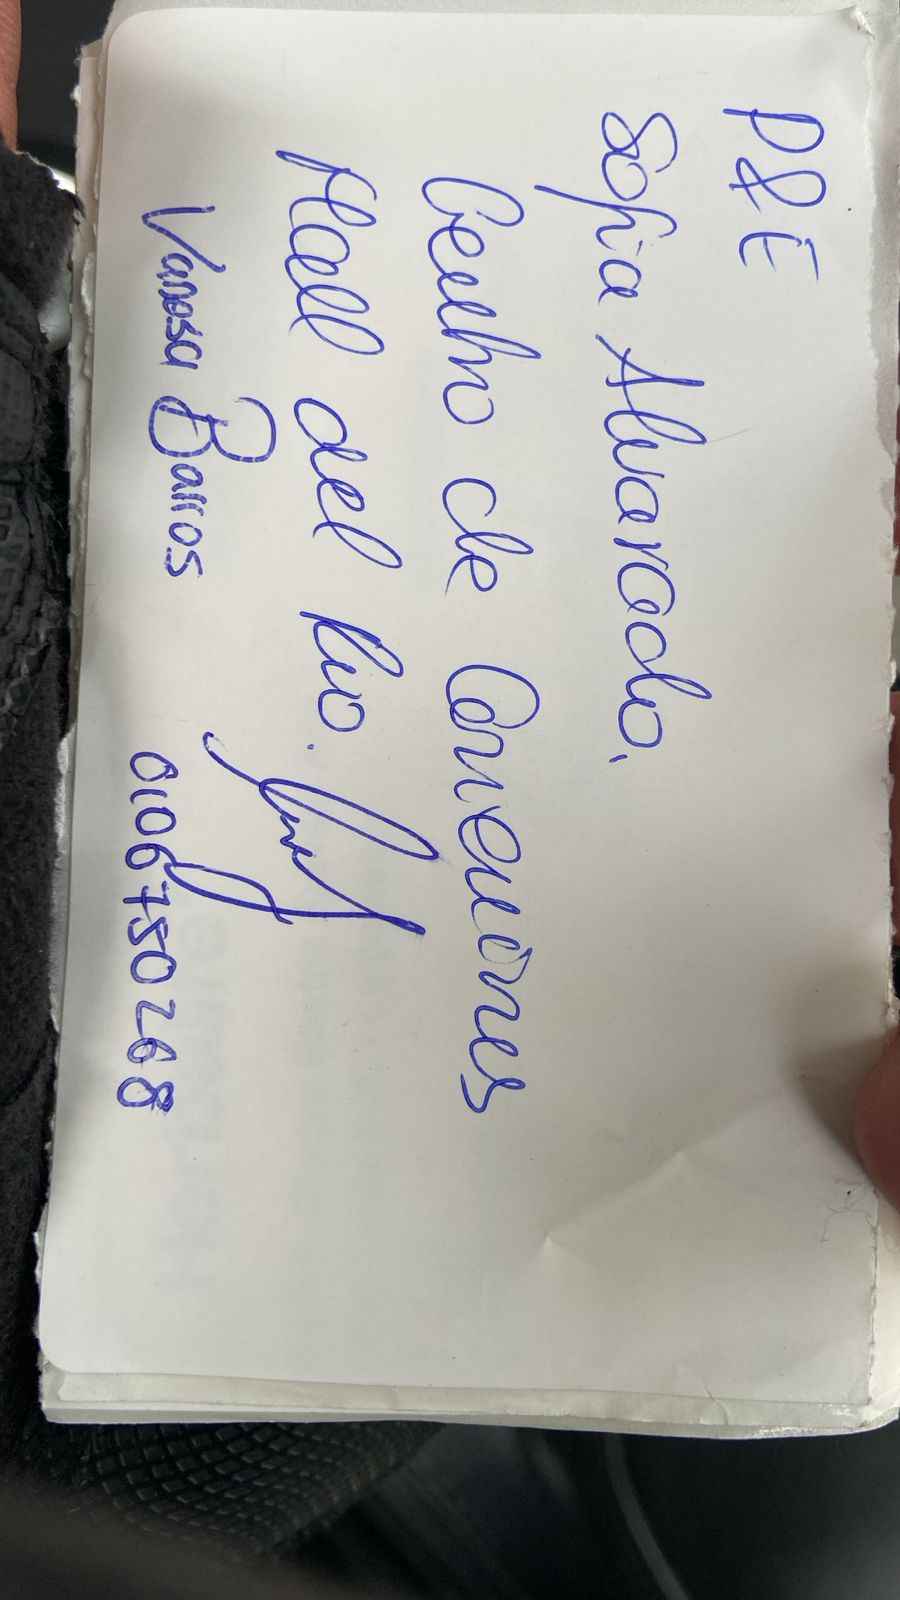 P&E
Sofia Alvarado.
Centro de Convenciones
Mall del Rio.
Vanesa Barros 0106750268